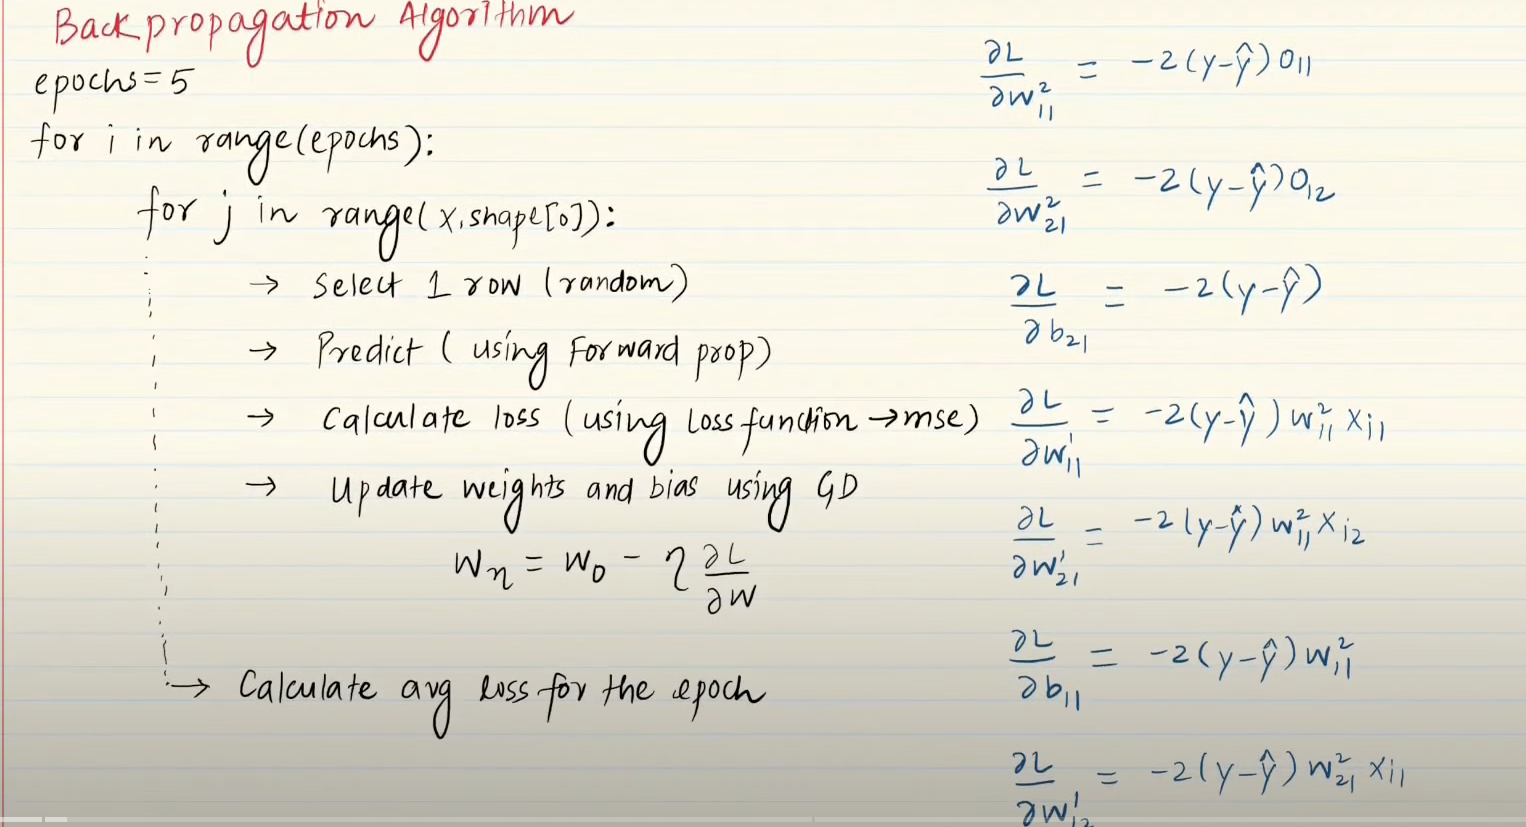 Backpropagation Algorithm
epochs=5
for i in range(epochs):
for j in range(x.shape[0]):
→ Select 1 row (random)
→ Predict (using Forward prop)
→ Calculate loss (using loss function → mse)
→ Update weights and bias using GD
Wn = Wo - η ∂L/∂W
→ Calculate avg loss for the epoch
∂L/∂W²₁₁ = -2(y-ŷ)O₁₁
∂L/∂W²₂₁ = -2(y-ŷ)O₁₂
∂L/∂b₂₁ = -2(y-ŷ)
∂L/∂W¹₁₁ = -2(y-ŷ)W²₁₁ Xᵢ₁
∂L/∂W¹₂₁ = -2(y-ŷ)W²₁₁ Xᵢ₂
∂L/∂b₁₁ = -2(y-ŷ)W²₁₁
∂L/∂W¹₁₂ = -2(y-ŷ)W²₂₁ Xᵢ₁